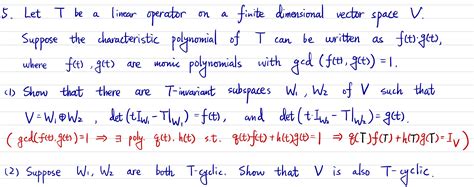 5. Let T be a linear operator on a finite dimensional vector space V.
Suppose the characteristic polynomial of T can be written as f(t)·g(t),
where f(t), g(t) are monic polynomials with gcd (f(t), g(t)) = 1.
(1) Show that there are T-invariant subspaces W₁, W₂ of V such that
V = W₁ ⊕ W₂ , det(t I_{W₁} - T|_{W₁}) = f(t), and det(t·I_{W₂} - T|_{W₂}) = g(t).
( gcd(f(t), g(t)) = 1 ⇒ ∃ poly. q(t), h(t) s.t. q(t)f(t) + h(t)g(t) = 1 ⇒ q(T)f(T) + h(T)g(T) = I_V )
(2) Suppose W₁, W₂ are both T-cyclic. Show that V is also T-cyclic.